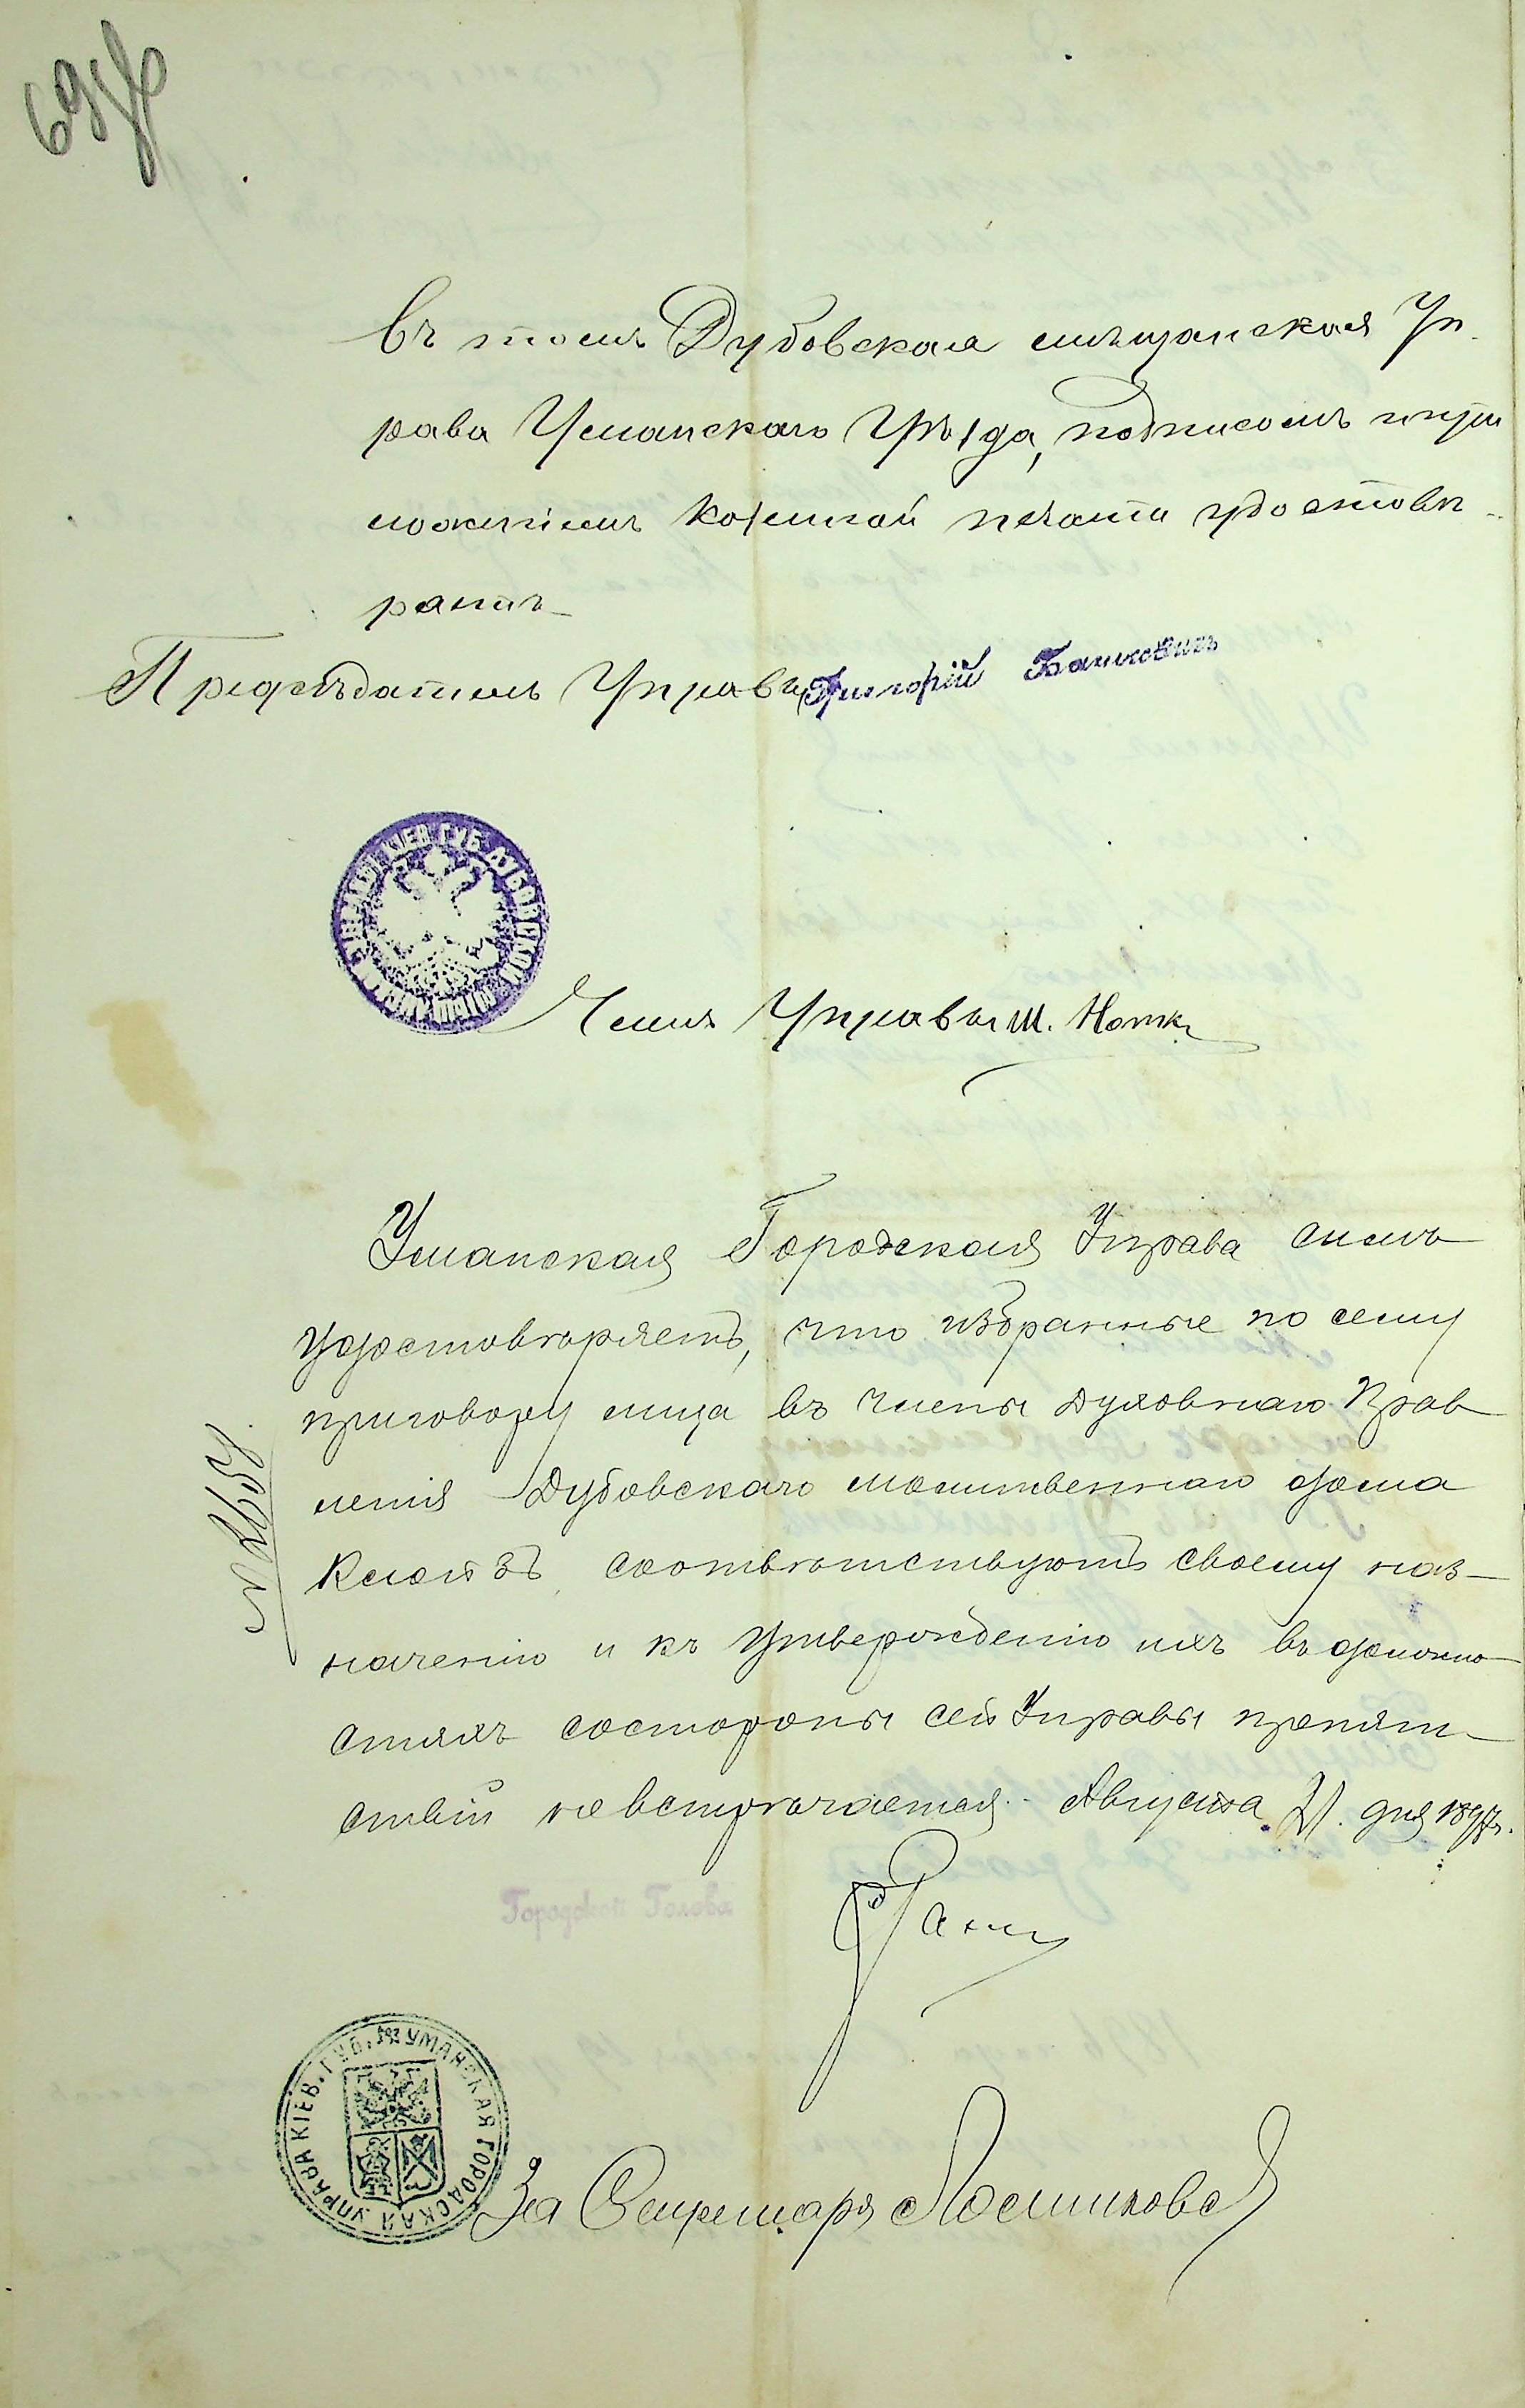 69 об
Въ томъ Дубовская мѣщанская Уп-
рава Уманскаго Уѣзда, подписомъ и при
ложеніемъ казенной печати удостовѣ-
ряетъ
Предсѣдатель Управы Григорій
КІЕВ. ГУБ. ДУБОВСКОЙ
Членъ Управы Ш.
Уманская Городская Управа симъ
удостовѣряетъ, что избранные по сему
приговору лица въ члены духовнаго Прав
ленія Дубовскаго молитвеннаго дома
Клойзъ соотвѣтствуютъ своему наз-
наченію и къ утвержденію ихъ въ должно-
стяхъ состороны сей Управы препят-
ствій не встрѣчается. Августа 21 дня 1897 г.
№ 2658
Городской Голова
УМАНСКАЯ ГОРОДСКАЯ УПРАВА КІЕВ. ГУБ.
За Секретаря